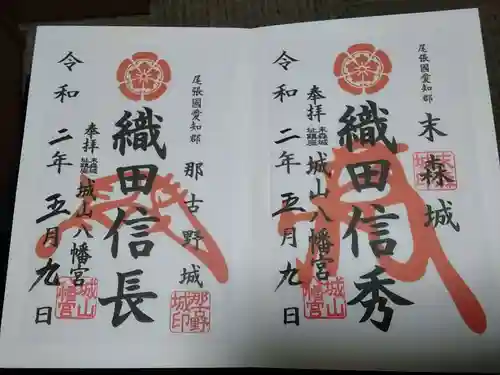 尾張國愛知郡
末森城
織田信秀
奉拝
末森城
址鎮座
城山八幡宮
令和二年五月九日
城山
八幡宮
尾張國愛知郡
那古野城
織田信長
奉拝
末森城
址鎮座
城山八幡宮
令和二年五月九日
城山
八幡宮
那古野
城印